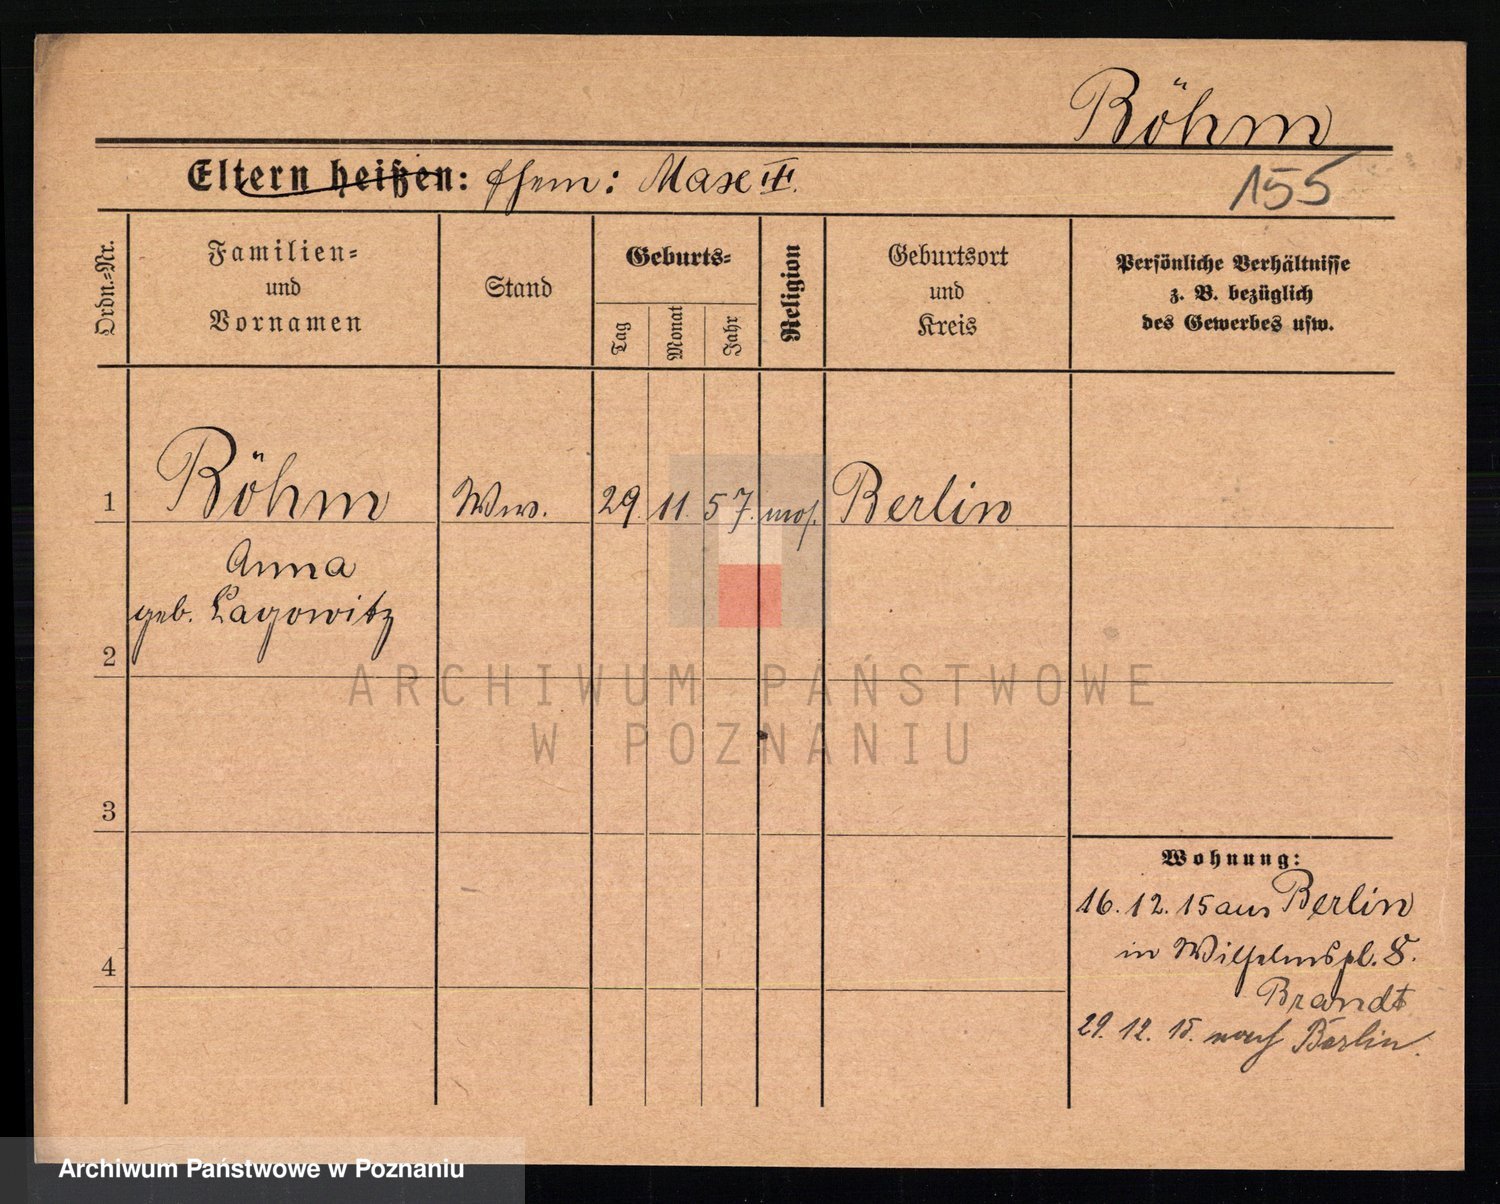 Böhm
Eltern heißen: Ehem: Max
155
Ordn.=Nr.
Familien=
und
Vornamen
Stand
Geburts=
Tag
Monat
Jahr
Religion
Geburtsort
und
Kreis
Persönliche Verhältnisse
z. B. bezüglich
des Gewerbes usw.
1 Böhm Ww. 29. 11. 57. mos. Berlin
Anna
geb. Lagowitz
2
ARCHIWUM PAŃSTWOWE
W POZNANIU
3
Wohnung:
16. 12. 15 aus Berlin
in Wilhelmspl. 8.
Brandt
4
29. 12. 15. nach Berlin.
Archiwum Państwowe w Poznaniu